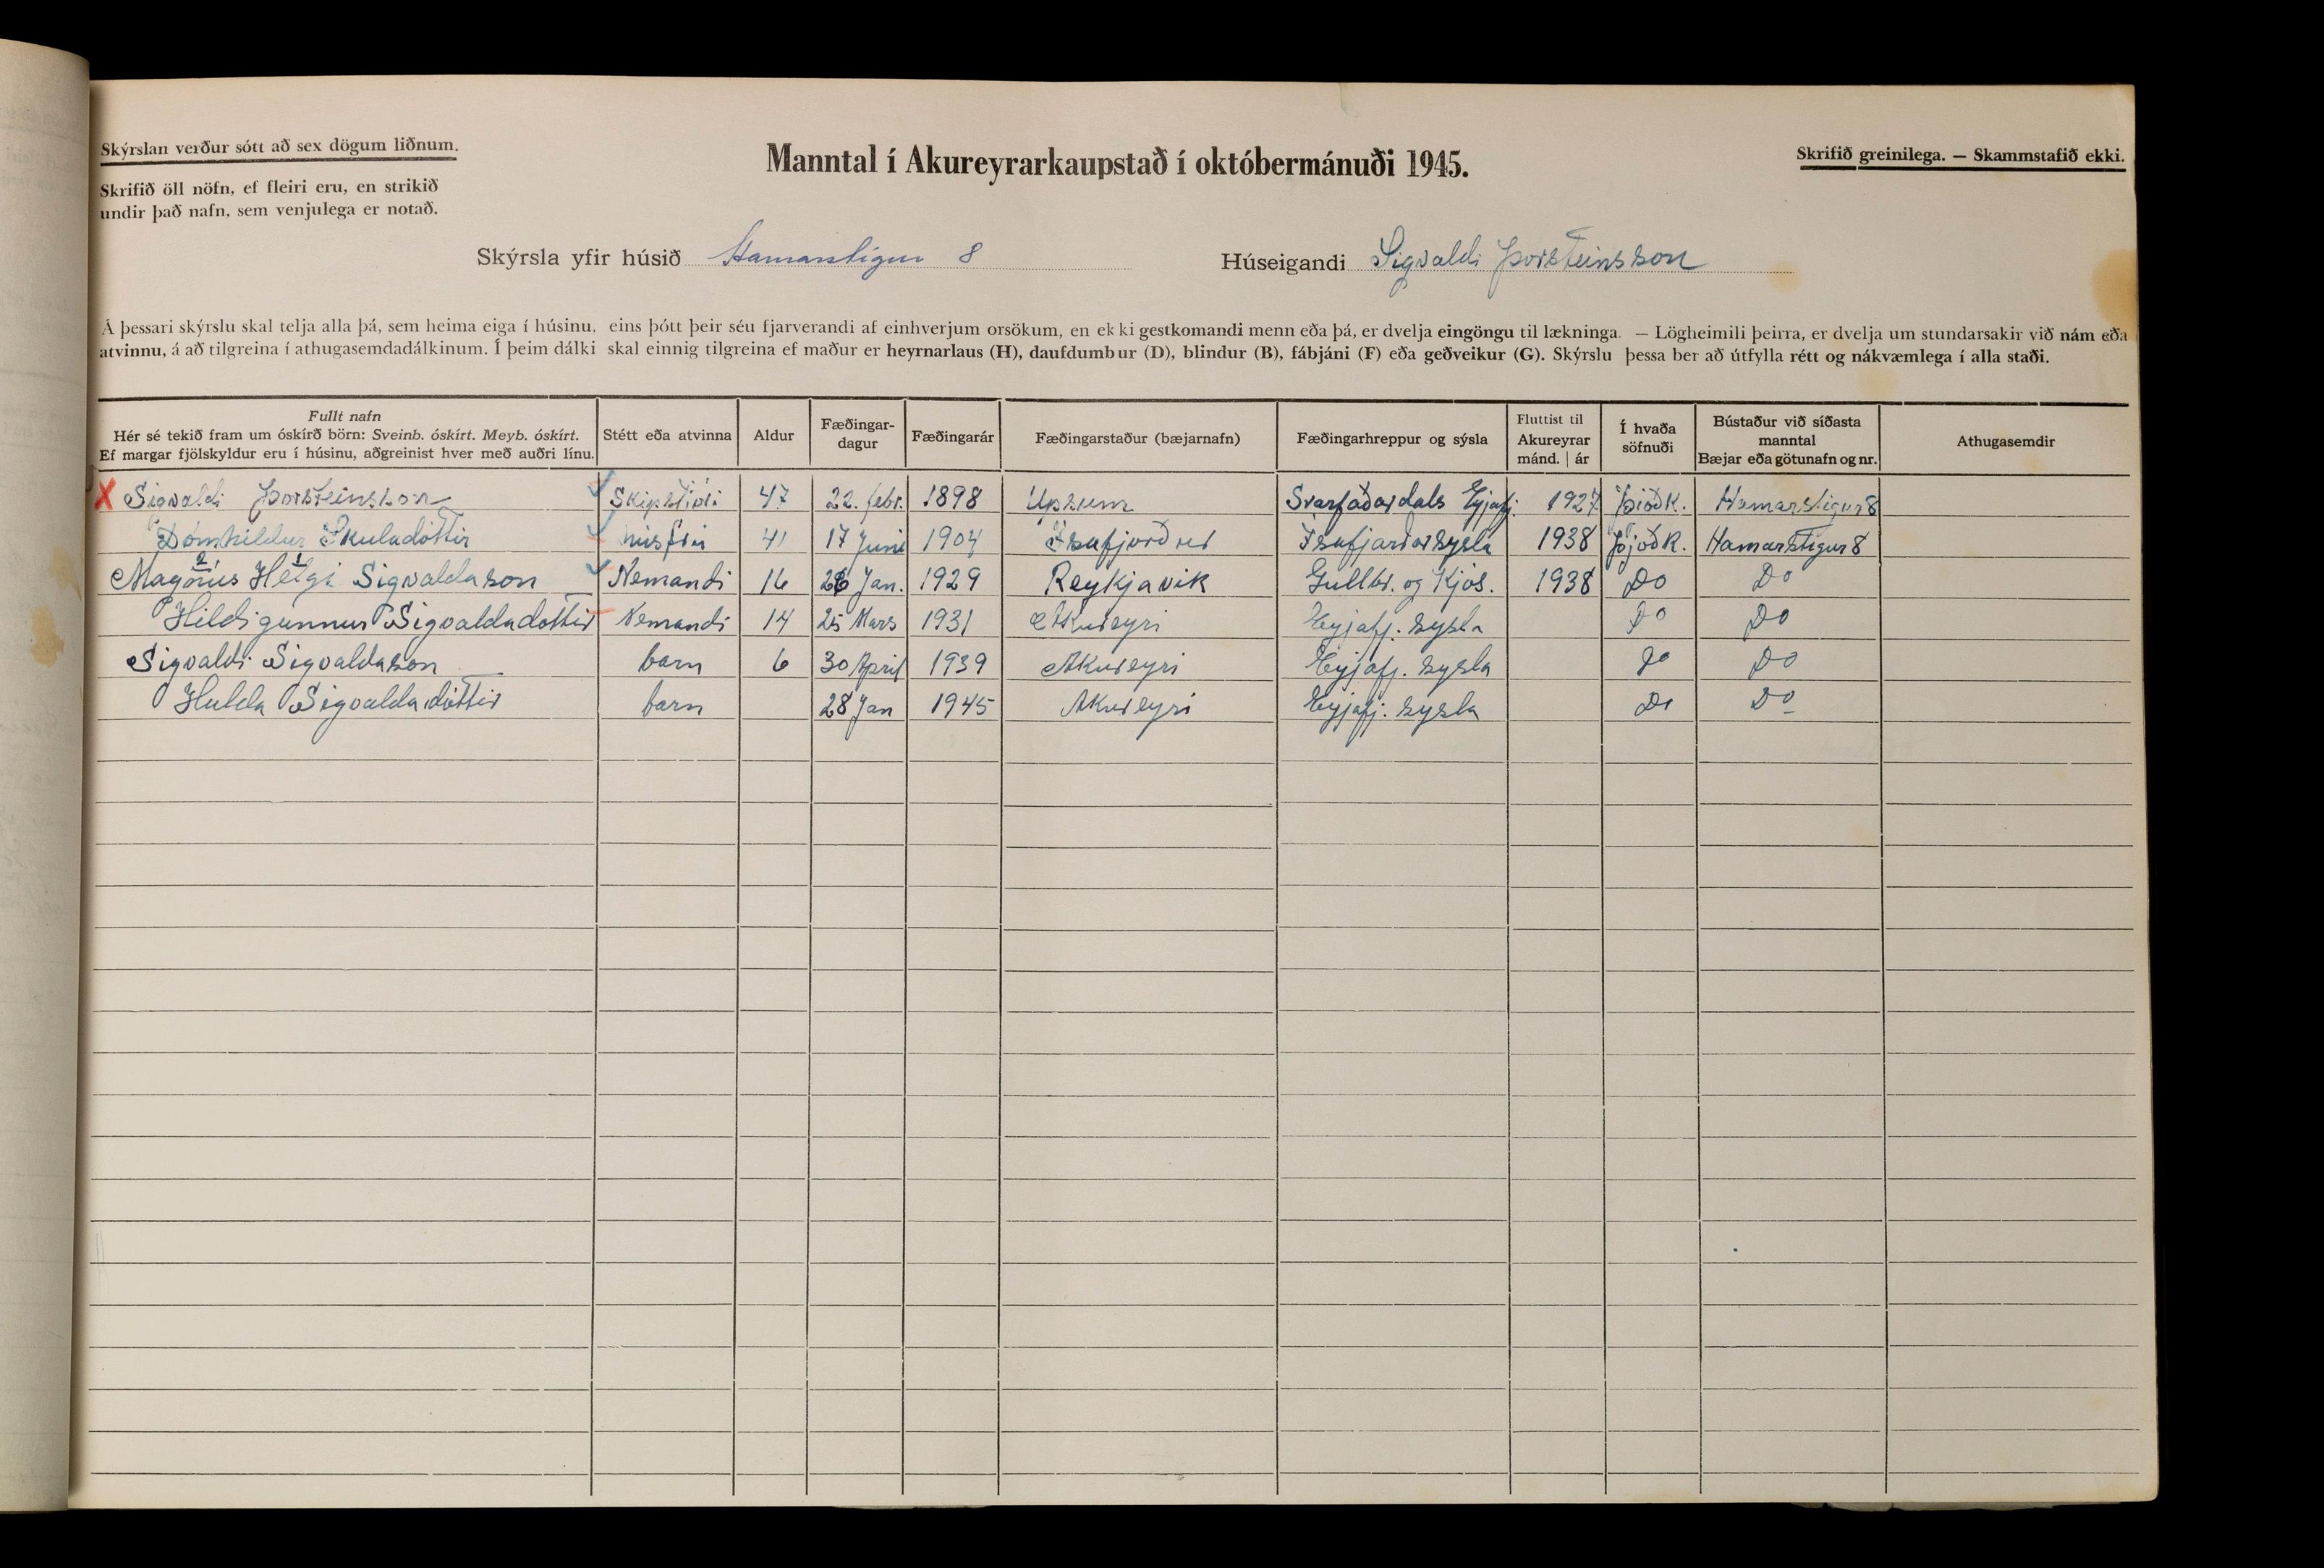 Skýrslan verður sótt að sex dögum liðnum.
Skrifið öll nöfn, ef fleiri eru, en strikið
undir það nafn, sem venjulega er notað.
Manntal í Akureyrarkaupstað í októbermánuði 1945.
Skrifið greinilega. — Skammstafið ekki.
Skýrsla yfir húsið Hamarstígur 8 Húseigandi Sigvaldi Þorsteinsson
Á þessari skýrslu skal telja alla þá, sem heima eiga í húsinu, eins þótt þeir séu fjarverandi af einhverjum orsökum, en ekki gestkomandi menn eða þá, er dvelja eingöngu til lækninga. — Lögheimili þeirra, er dvelja um stundarsakir við nám eða
atvinnu, á að tilgreina í athugasemdadálkinum. Í þeim dálki skal einnig tilgreina ef maður er heyrnarlaus (H), daufdumbur (D), blindur (B), fábjáni (F) eða geðveikur (G). Skýrslu þessa ber að útfylla rétt og nákvæmlega í alla staði.
Fullt nafn
Hér sé tekið fram um óskírð börn: Sveinb. óskírt. Meyb. óskírt.
Ef margar fjölskyldur eru í húsinu, aðgreinist hver með auðri línu.
Stétt eða atvinna
Aldur
Fæðingar-
dagur
Fæðingarár
Fæðingarstaður (bæjarnafn)
Fæðingarhreppur og sýsla
Fluttist til
Akureyrar
mánd. | ár
Í hvaða
söfnuði
Bústaður við síðasta
manntal
Bæjar eða götunafn og nr.
Athugasemdir
X Sigvaldi Þorsteinsson Skipstjóri 47 22. febr. 1898 Upsum Svarfaðardals Eyjafj. 1927 ÞjóðK. Hamarstígur 8
Dómhildur Skuladóttir húsfrú 41 17 Juni 1904 Ísafjorður Ísafjarðarsysla 1938 ÞjóðK. Hamarstígur 8
2 1
Magnús Helgi Sigvaldason Nemandi 16 26 Jan. 1929 Reykjavik Gullbr. og Kjós. 1938 Do Do
Hildigunnur Sigvaldadóttir Nemandi 14 25 Mars 1931 Akureyri Eyjafj. sysla Do Do
Sigvaldi Sigvaldason barn 6 30 April 1939 Akureyri Eyjafj. sysla Do Do
Hulda Sigvaldadóttir barn 28 Jan 1945 Akureyri Eyjafj. sysla Do Do